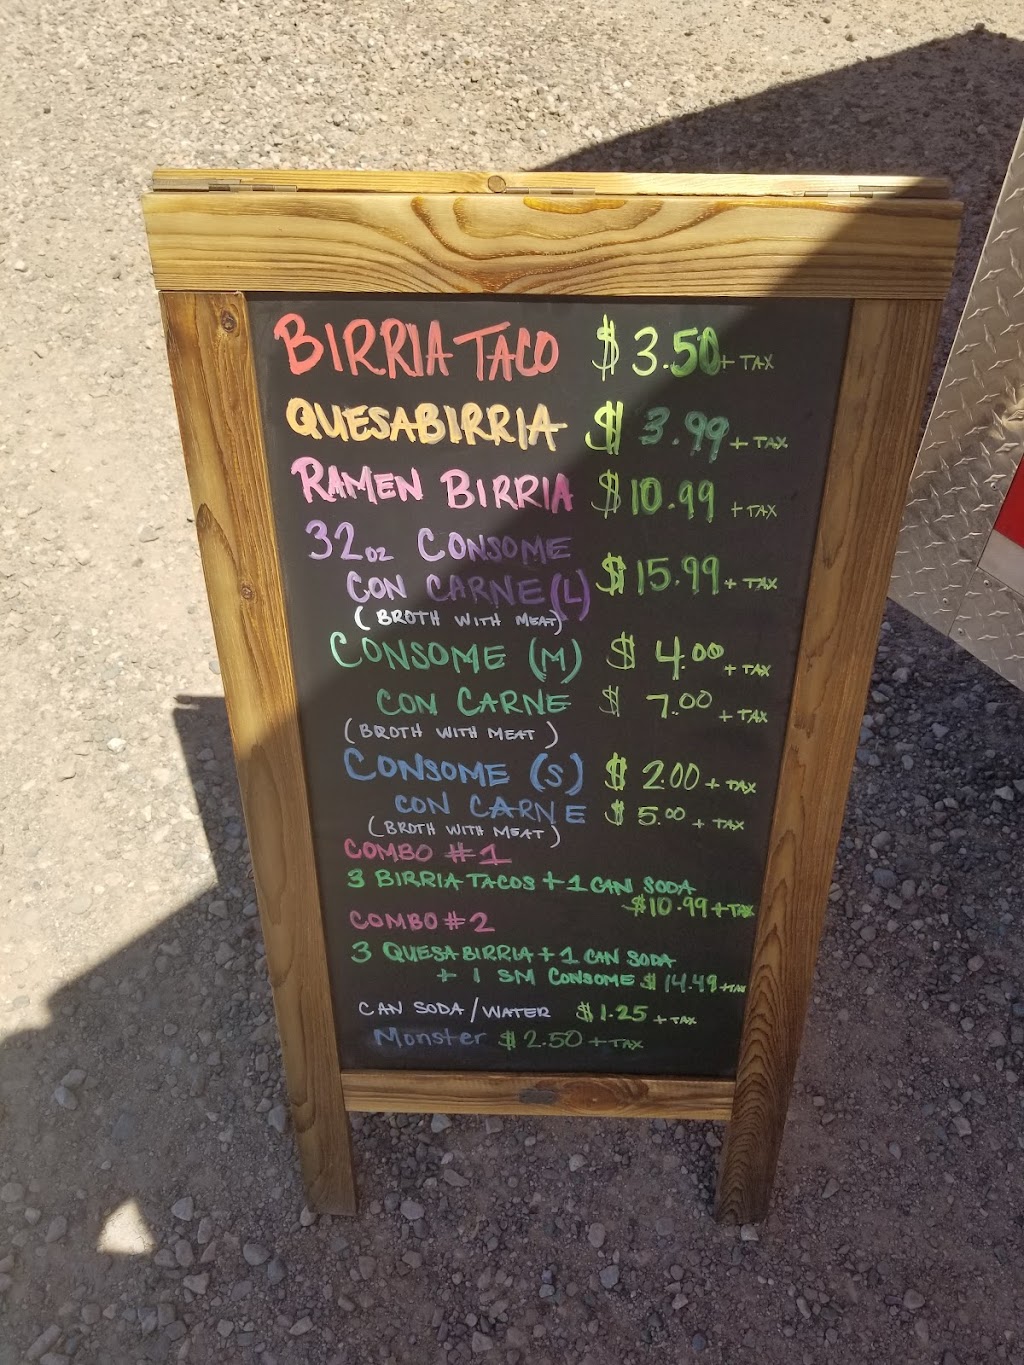 BIRRIA TACO $3.50 + TAX
QUESABIRRIA $3.99 + TAX
RAMEN BIRRIA $10.99 + TAX
32oz CONSOME
CON CARNE (L) $15.99 + TAX
(BROTH WITH MEAT)
CONSOME (M) $4.00 + TAX
CON CARNE $7.00 + TAX
(BROTH WITH MEAT)
CONSOME (S) $2.00 + TAX
CON CARNE $5.00 + TAX
(BROTH WITH MEAT)
COMBO #1
3 BIRRIA TACOS + 1 CAN SODA
$10.99 + TAX
COMBO #2
3 QUESABIRRIA + 1 CAN SODA
+ 1 SM CONSOME $14.49 + TAX
CAN SODA/WATER $1.25 + TAX
Monster $2.50 + TAX